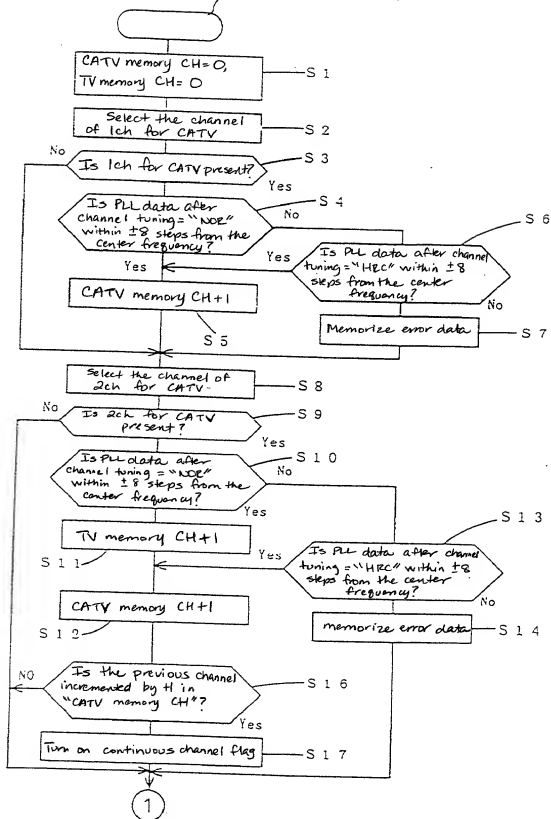 CATV memory CH=0,
TV memory CH=0
S 1
Select the channel
of 1ch for CATV
S 2
Is 1ch for CATV present?
S 3
No
Yes
Is PLL data after
channel tuning="NOR"
within ±8 steps from the
center frequency?
S 4
No
Yes
Is PLL data after channel
tuning="HRC" within ±8
steps from the center
frequency?
S 6
Yes
No
CATV memory CH+1
S 5
Memorize error data
S 7
Select the channel of
2ch for CATV
S 8
Is 2ch for CATV
present?
S 9
No
Yes
Is PLL data after
channel tuning="NOR"
within ±8 steps from the
center frequency?
S 1 0
No
Yes
TV memory CH+1
S 1 1
Is PLL data after channel
tuning="HRC" within ±8
steps from the center
frequency?
S 1 3
Yes
No
CATV memory CH+1
S 1 2
memorize error data
S 1 4
Is the previous channel
incremented by +1 in
"CATV memory CH"?
S 1 6
NO
Yes
Turn on continuous channel flag
S 1 7
1